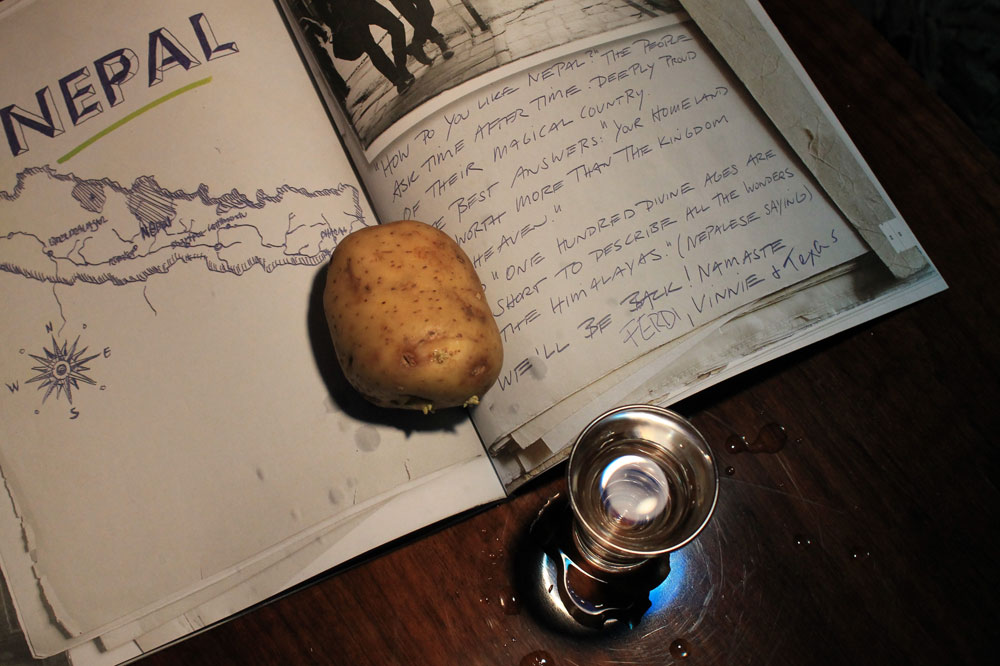 NEPAL
NEPAL
N
E
W
S
"HOW DO YOU LIKE NEPAL?" THE PEOPLE
ASK TIME AFTER TIME. DEEPLY PROUD
OF THEIR MAGICAL COUNTRY.
BEST ANSWERS: "YOUR HOMELAND
WORTH MORE THAN THE KINGDOM
HEAVEN."
"ONE HUNDRED DIVINE AGES ARE
SHORT TO DESCRIBE ALL THE WONDERS
THE HIMALAYAS." (NEPALESE SAYING)
WE'LL BE BACK! NAMASTE
FERDI, VINNIE + Texas